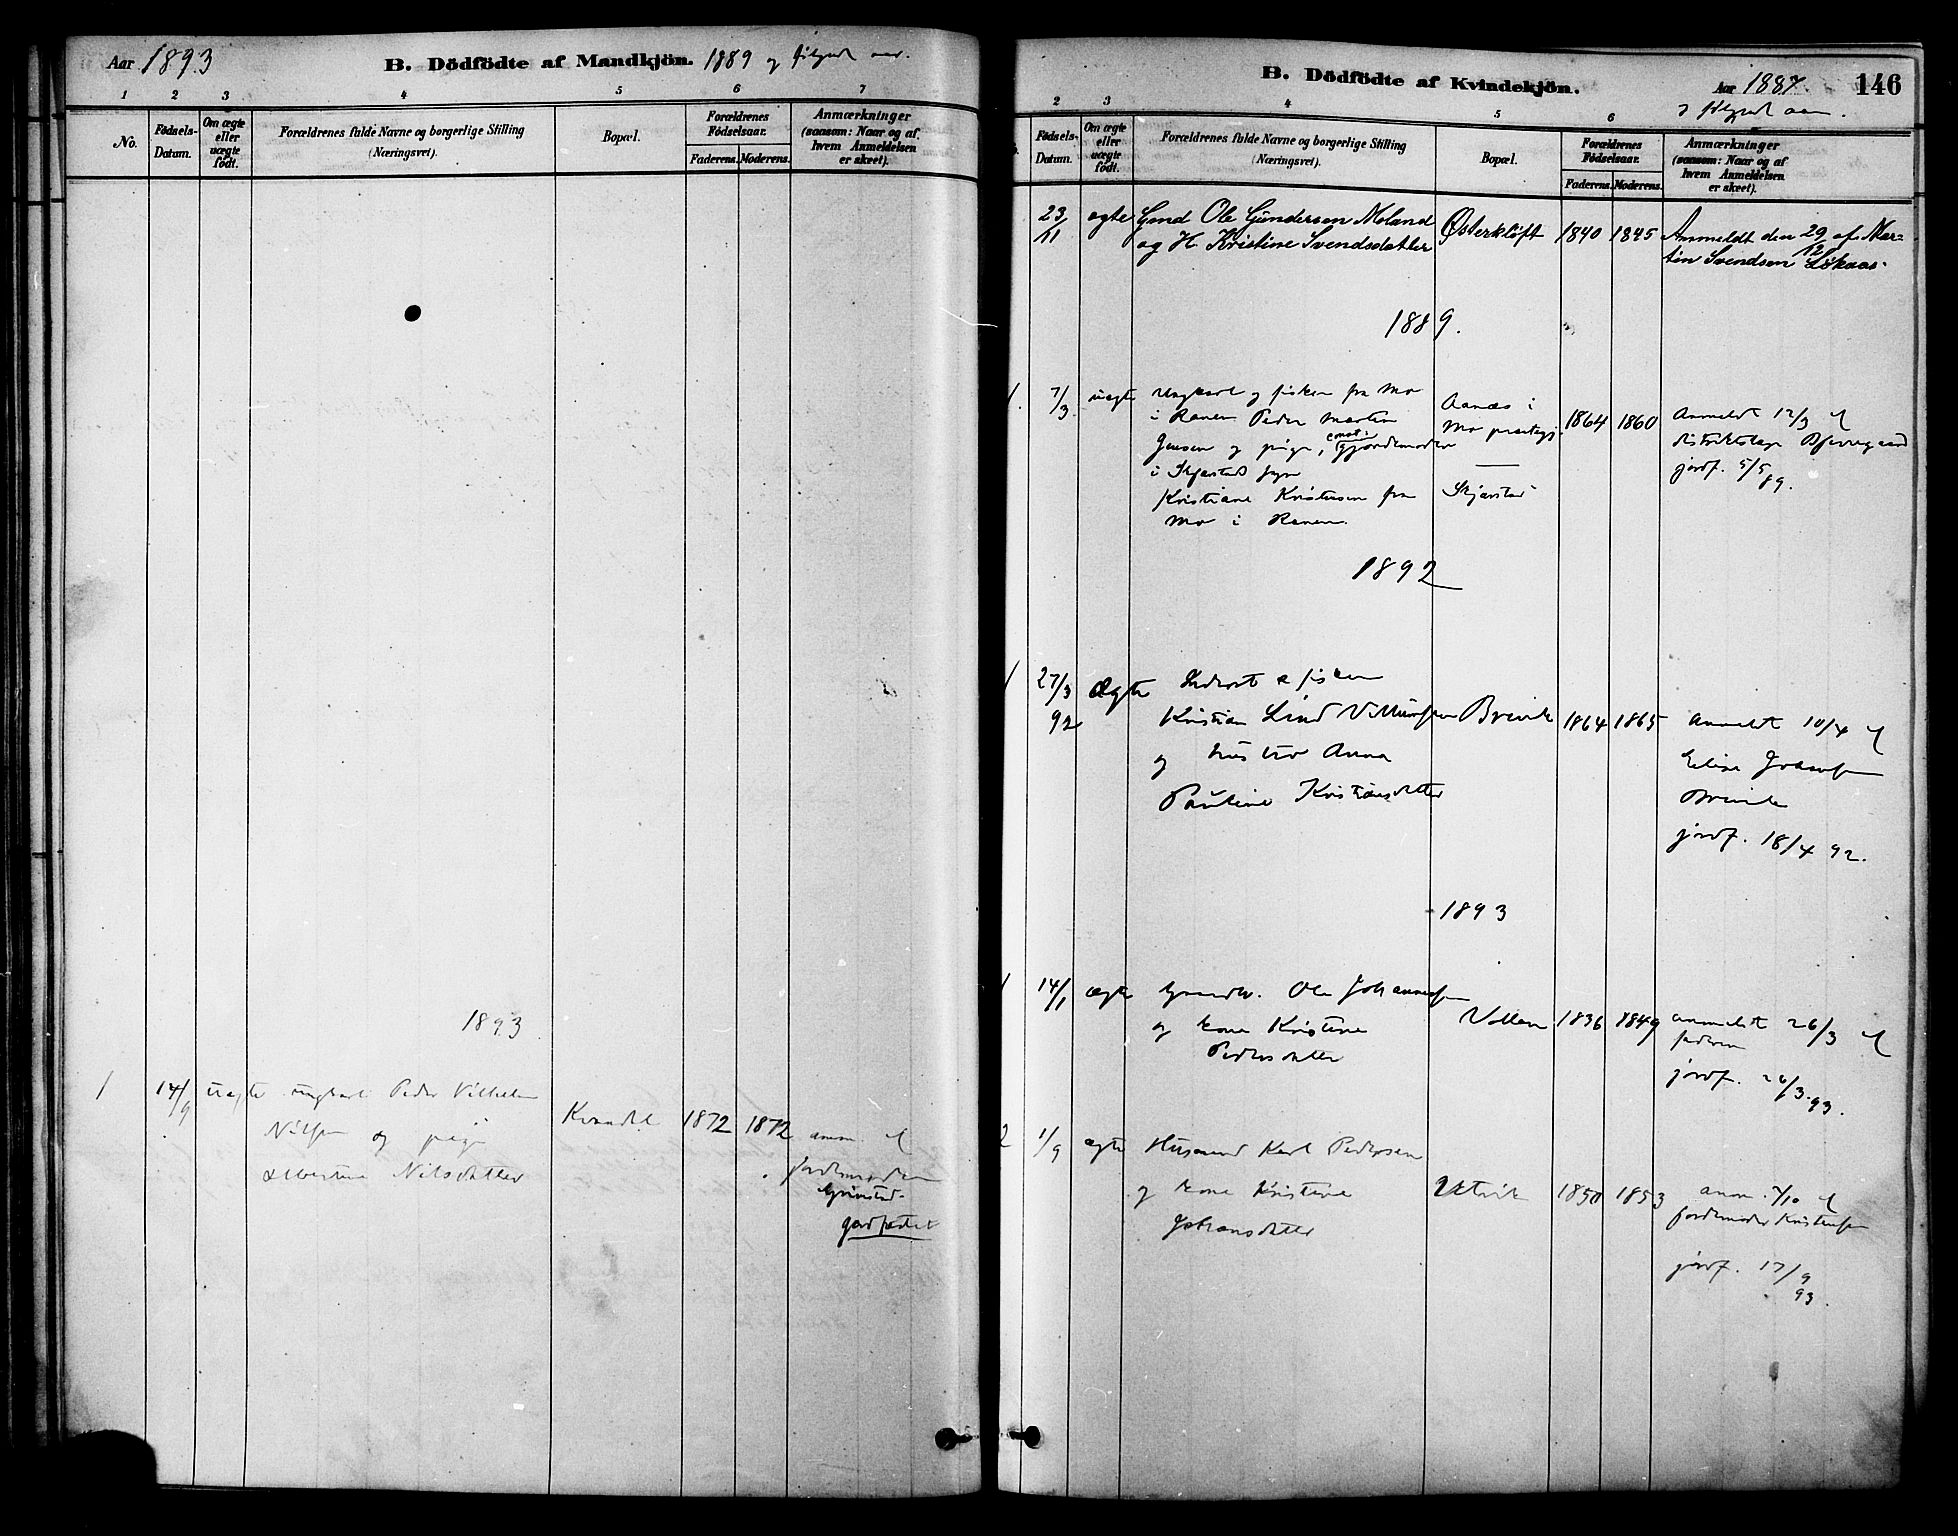 Aar 1893
B. Dödfödte af Mandkjön. 1889 og følgende aar.
1 2 3 4 5 6 7
No.
Fødsels-Datum.
Om ægte eller uægte födt.
Forældrenes fulde Navne og borgerlige Stilling
(Næringsvei).
Bopæl.
Forældrenes Fødselsaar.
Faderens. Moderens.
Anmærkninger
(saasom: Naar og af
hvem Anmeldelsen
er skeet).
1893
1 14/9 uægte ungkarl Peder Vilhelm
Nilsen og pige
Albertine Nilsdatter
Kvandal 1872 1872
anm. af
jordemoderen
Grimstad.
jordfæstet
B. Dödfödte af Kvindekjön.
Aar 1887
146
og følgende aar.
2 3 4 5 6
Fødsels-
Datum.
Om ægte
eller
uægte
födt.
Forældrenes fulde Navne og borgerlige Stilling
(Næringsvei).
Bopæl.
Forældrenes
Fødselsaar.
Faderens. Moderens.
Anmærkninger
(saasom: Naar og af
hvem Anmeldelsen
er skeet).
23/11 ægte Gmd Ole Gundersen Moland
og H. Kristine Svendsdatter
Østerkløft 1840 1845
Anmeldt den 29/12 af Mar-
tin Svendsen Løkaas.
1889.
1. 7/3. uægte Ungkarl og fisker fra Mo
i Ranen Peder Martin
Jensen og pige, const. gjordemoder
i Skjerstad sogn
Kristiane Kristensen fra
Mo i Ranen.
Aanæs i
Mo præstegj.
Skjerstad
1864 1860
Anmeldt 12/3 af
distriktslæge Bjerregaard
jordf. 5/5 89.
1892
1 27/3 92 Ægte Inderst & fisker
Kristian Lind Vilhumsen
og hustro Anna
Pauline Kristiansdatter
Brevik 1864 1865
Anmeldt 10/4 af
Elise Johansen
Brevik
jordf. 18/4 92.
1893
1 14/1 ægte Gaardbr. Ole Johannesen
og kone Kristine
Pedersdatter
Vollen 1836 1849
anmeldt 26/3 af
faderen
jordf. 26/3 93.
2 1/9 ægte Husmand Karl Pedersen
og kone Kristine
Johansdatter
Utvik 1850 1853
anm. 7/10 af
jordemoder Kristensen
jordf. 17/9
93.